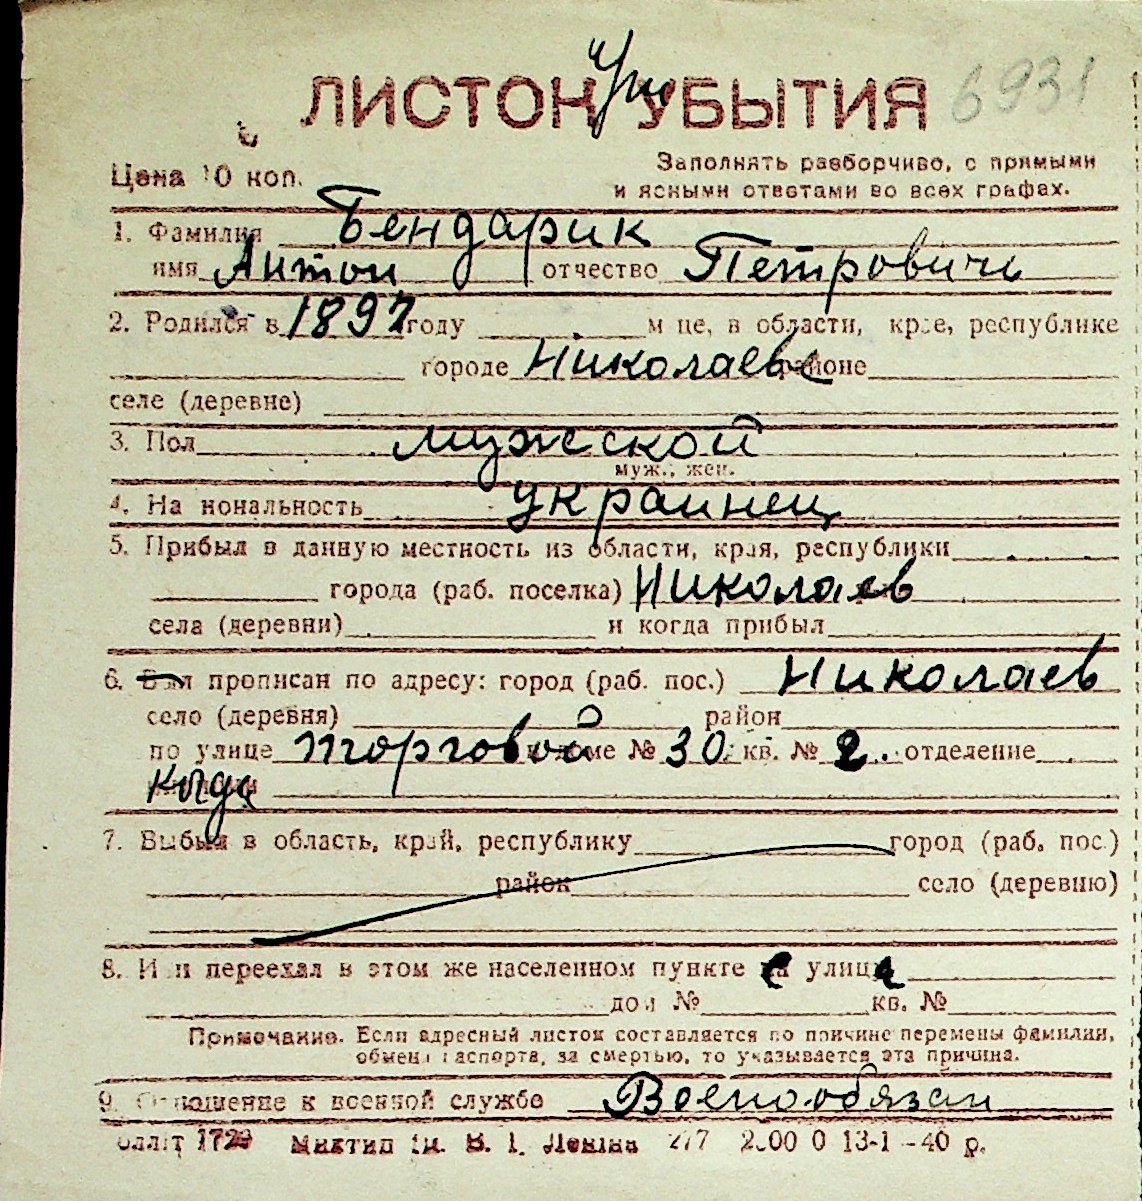 ЛИСТОК УБЫТИЯ 6931
Цена 10 коп. Заполнять разборчиво, с прямыми
и ясными ответами во всех графах.
1. Фамилия Бендарик
имя Антон отчество Петрович
2. Родился в 1897 году м-це, в области, крае, республике
городе Николаеве районе
селе (деревне)
3. Пол мужской
муж., жен.
4. Национальность украинец
5. Прибыл в данную местность из области, края, республики
города (раб. поселка) Николаев
села (деревни) и когда прибыл
6. Был прописан по адресу: город (раб. пос.) Николаев
село (деревня) район
по улице торговой доме № 30 кв. № 2. отделение
7. Выбыл в область, край, республику город (раб. пос.)
район село (деревню)
8. Или переехал в этом же населенном пункте улице
дом № кв. №
Примечание. Если адресный листок составляется по причине перемены фамилии,
обмена паспорта, за смертью, то указывается эта причина.
9. Отношение к военной службе Военообязан
1729 Миктип ім. В. І. Леніна 13-1-40 р.